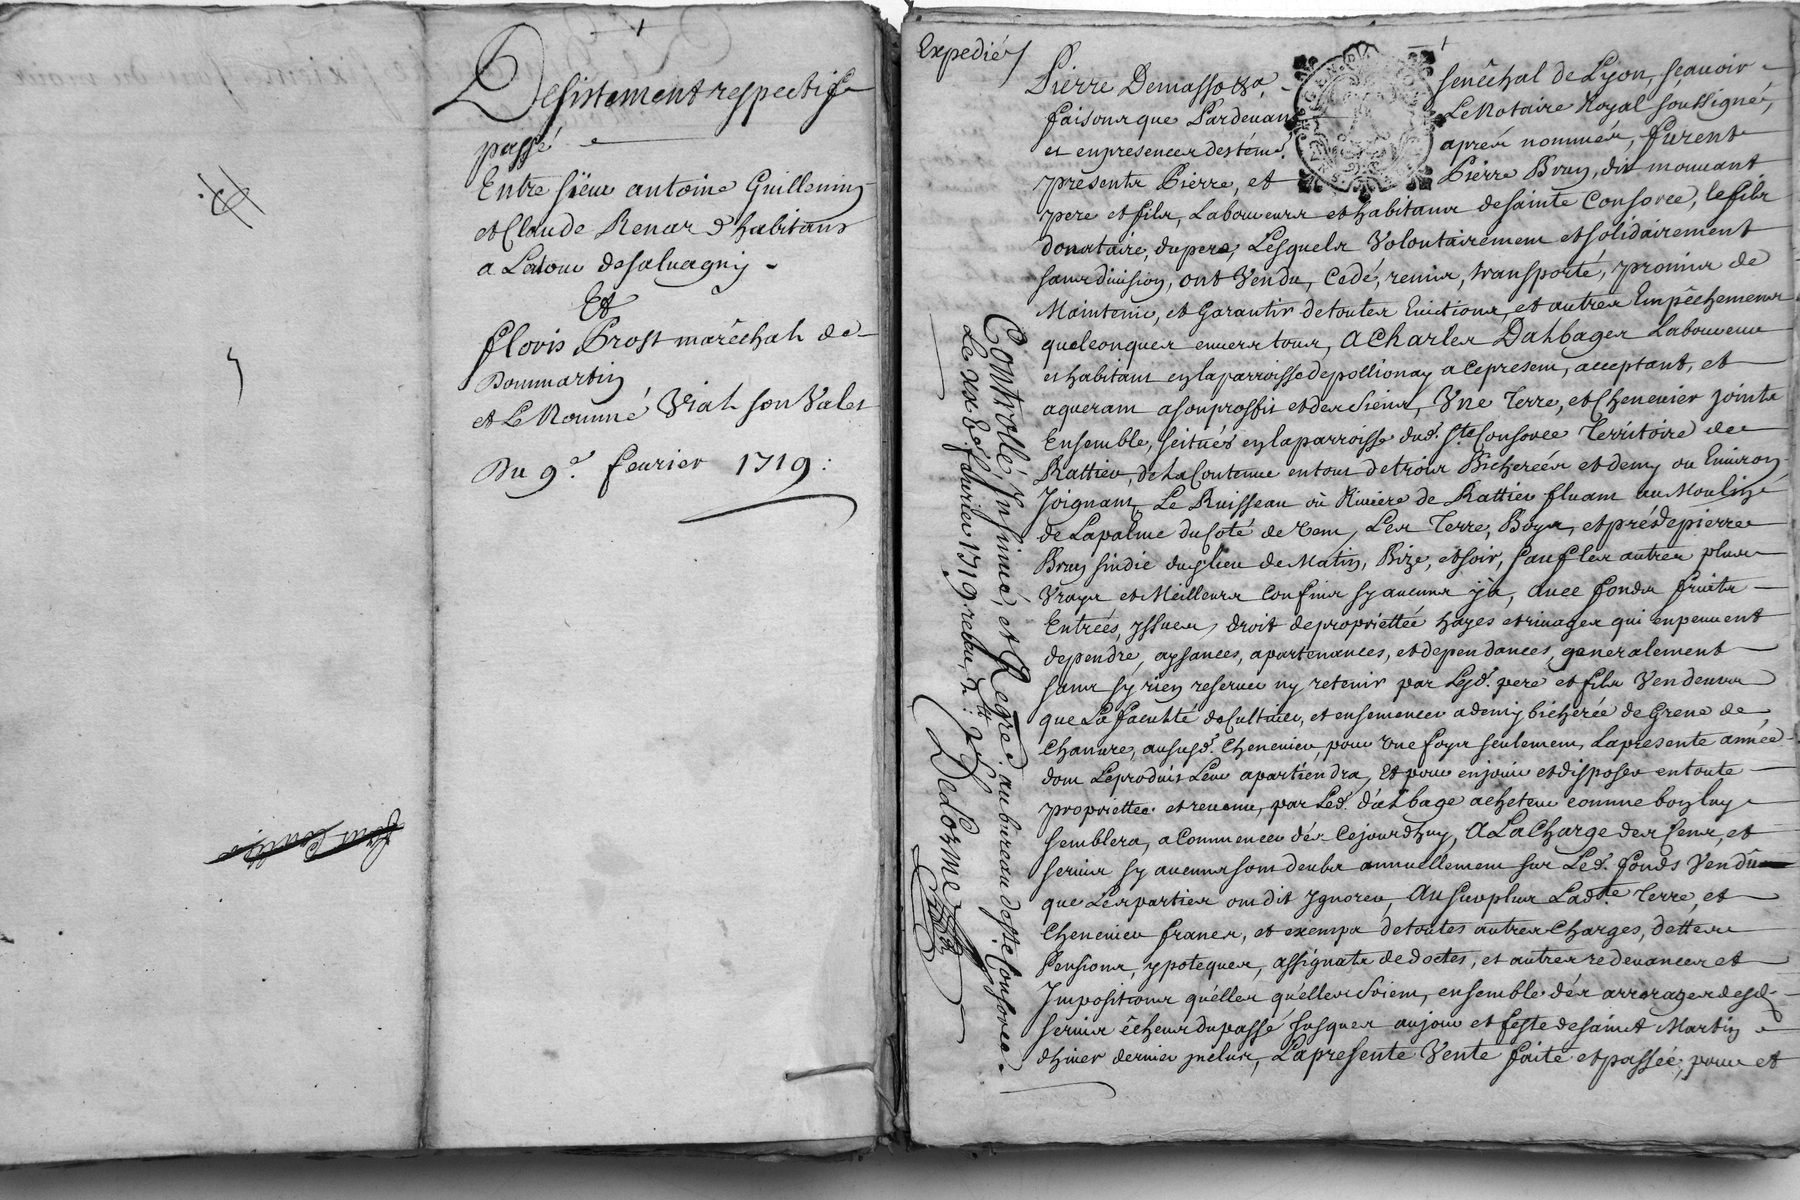 Desistement respectif
passé
Entre sieur antoine Guillemin
et Claude Renard habitans
a Latour desalvagny
Et
flovis Prost maréchal de
Dommartin
et Le Nommé Vial son Valet
Du 9e. fevrier 1719:
Expedié
Pierre Demasso
senêchal de Lyon, sçavoir
faisons que Pardevan
Le Notaire Royal soussigné,
et enpresences destém.
aprés nommés, furent
presents Pierre, et
Pierre Brun, dit mouvant
pere et fils, Laboureurs et habitans desainte Consorce, le fils
donataire, dupere, Lesquels Volontairement et solidairement
sans division, ont Vendu, Cedé, remis, transporté, promis de
Maintenir, et Garantir detoutes Evictions, et autres Empêchemens
quelconques envers tous, a Charles Dalbages Laboureur
et habitant en laparroisse depollionay a cepresent, acceptant, et
aquerant asonproffit et des siens, Une Terre, et Chenevier joints
Ensemble, scitués en laparroisse dud. Ste Consorce Territoire de
Rattier, de la Contenue entout de trois Bicherées et demy ou Environ
Joignant, Le Ruisseau où Riviere de Rattier fluant au Moulin
de Lapalme du Coté de vent, Les Terre, Boys, et prés depierre
Brun sindic dud lieu de Matin, Bize, et soir, sauf les autres plus
Vrays et Meilleurs Confins sy aucuns ya, avec fonds fruits
Entrées, yssues, droit depropriettée hayes et rivages qui enpeuvent
dependre, aysances, apartenances, et dependances, generalement
sans sy rien reserver ny retenir par Lesd. pere et fils Vendeurs
que La faculté de Cultiver, et ensemencer a demy bicherée de Grene de
Chanvre, aususd. Chenevier, pour une foys seulement, Lapresente année
dont Leproduit Leur apartiendra, Et pour enjouir et disposer entoute
propriettée et revenu, par Led. d'albage acheteur comme bon luy
semblera, a Commencer dés Cejourdhuy, A La Charge des Cens, et
servis sy aucuns sont deubs annuellement sur Led. fonds Vendu
que Les parties ont dit Ignorer, Au surplus Ladte. Terre, et
Chenevier francs, et exempts detoutes autres Charges, dettes
Pensions, ypoteques, assignats de doctes, et autres redevances et
Impositions quelles quelles soient, ensemble dés arrerages desd.
servis êcheus dupassé jusques aujour et feste desaint Martin
dhiver dernier inclus, Lapresente Vente faite et passée, pour et
Controllé, Insinué, et Regré. au bureau deste. Consorce
Le xxe. fevrier 1719. recu,
Delorme